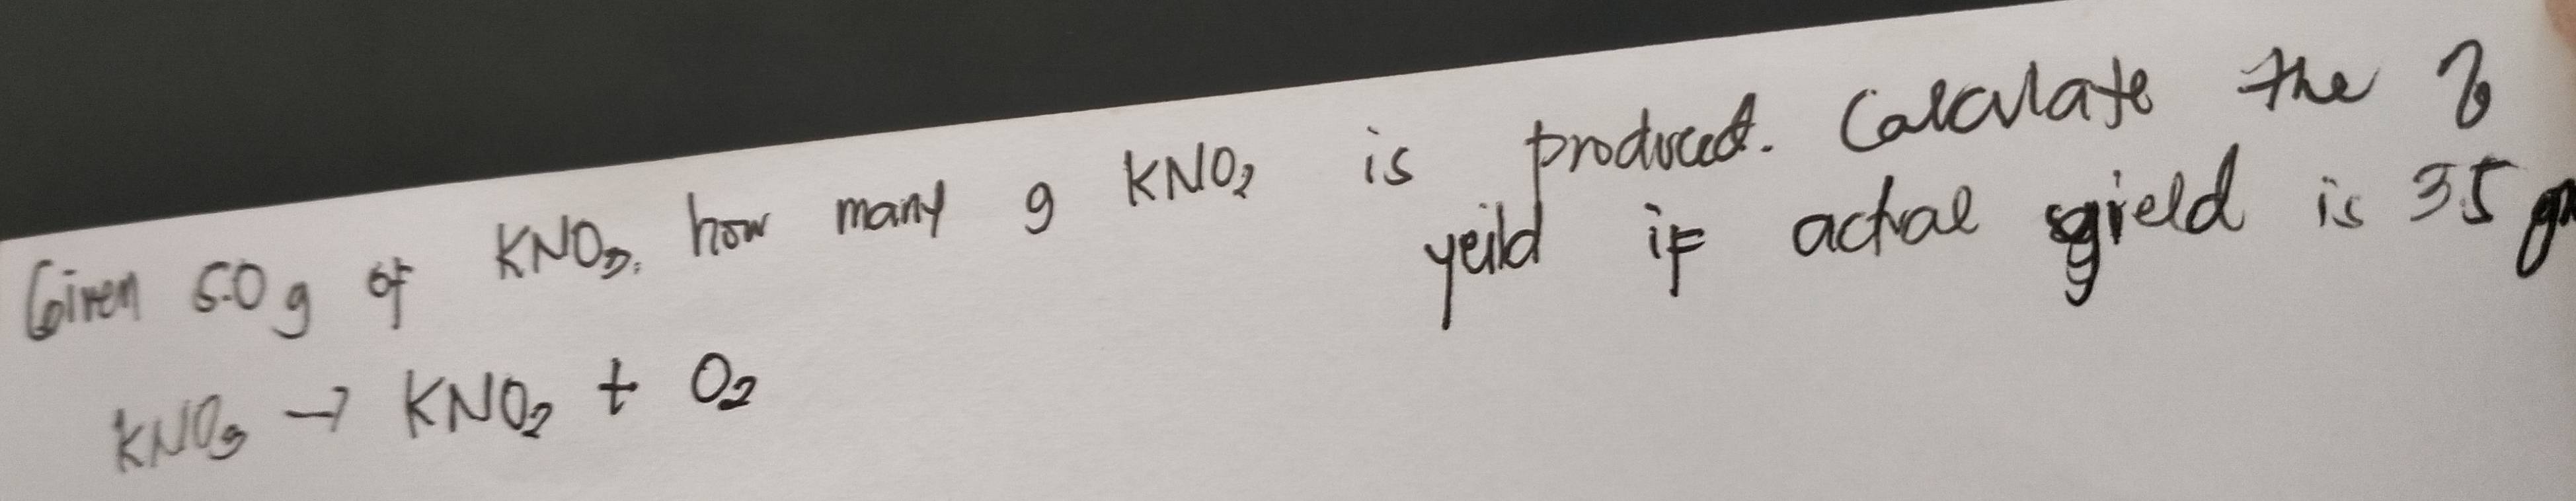 Given 50g of KNO₃, how many g KNO₂ is produced. Calculate the %
yeild if actual yield is 35 gm
KNO₃ → KNO₂ + O₂